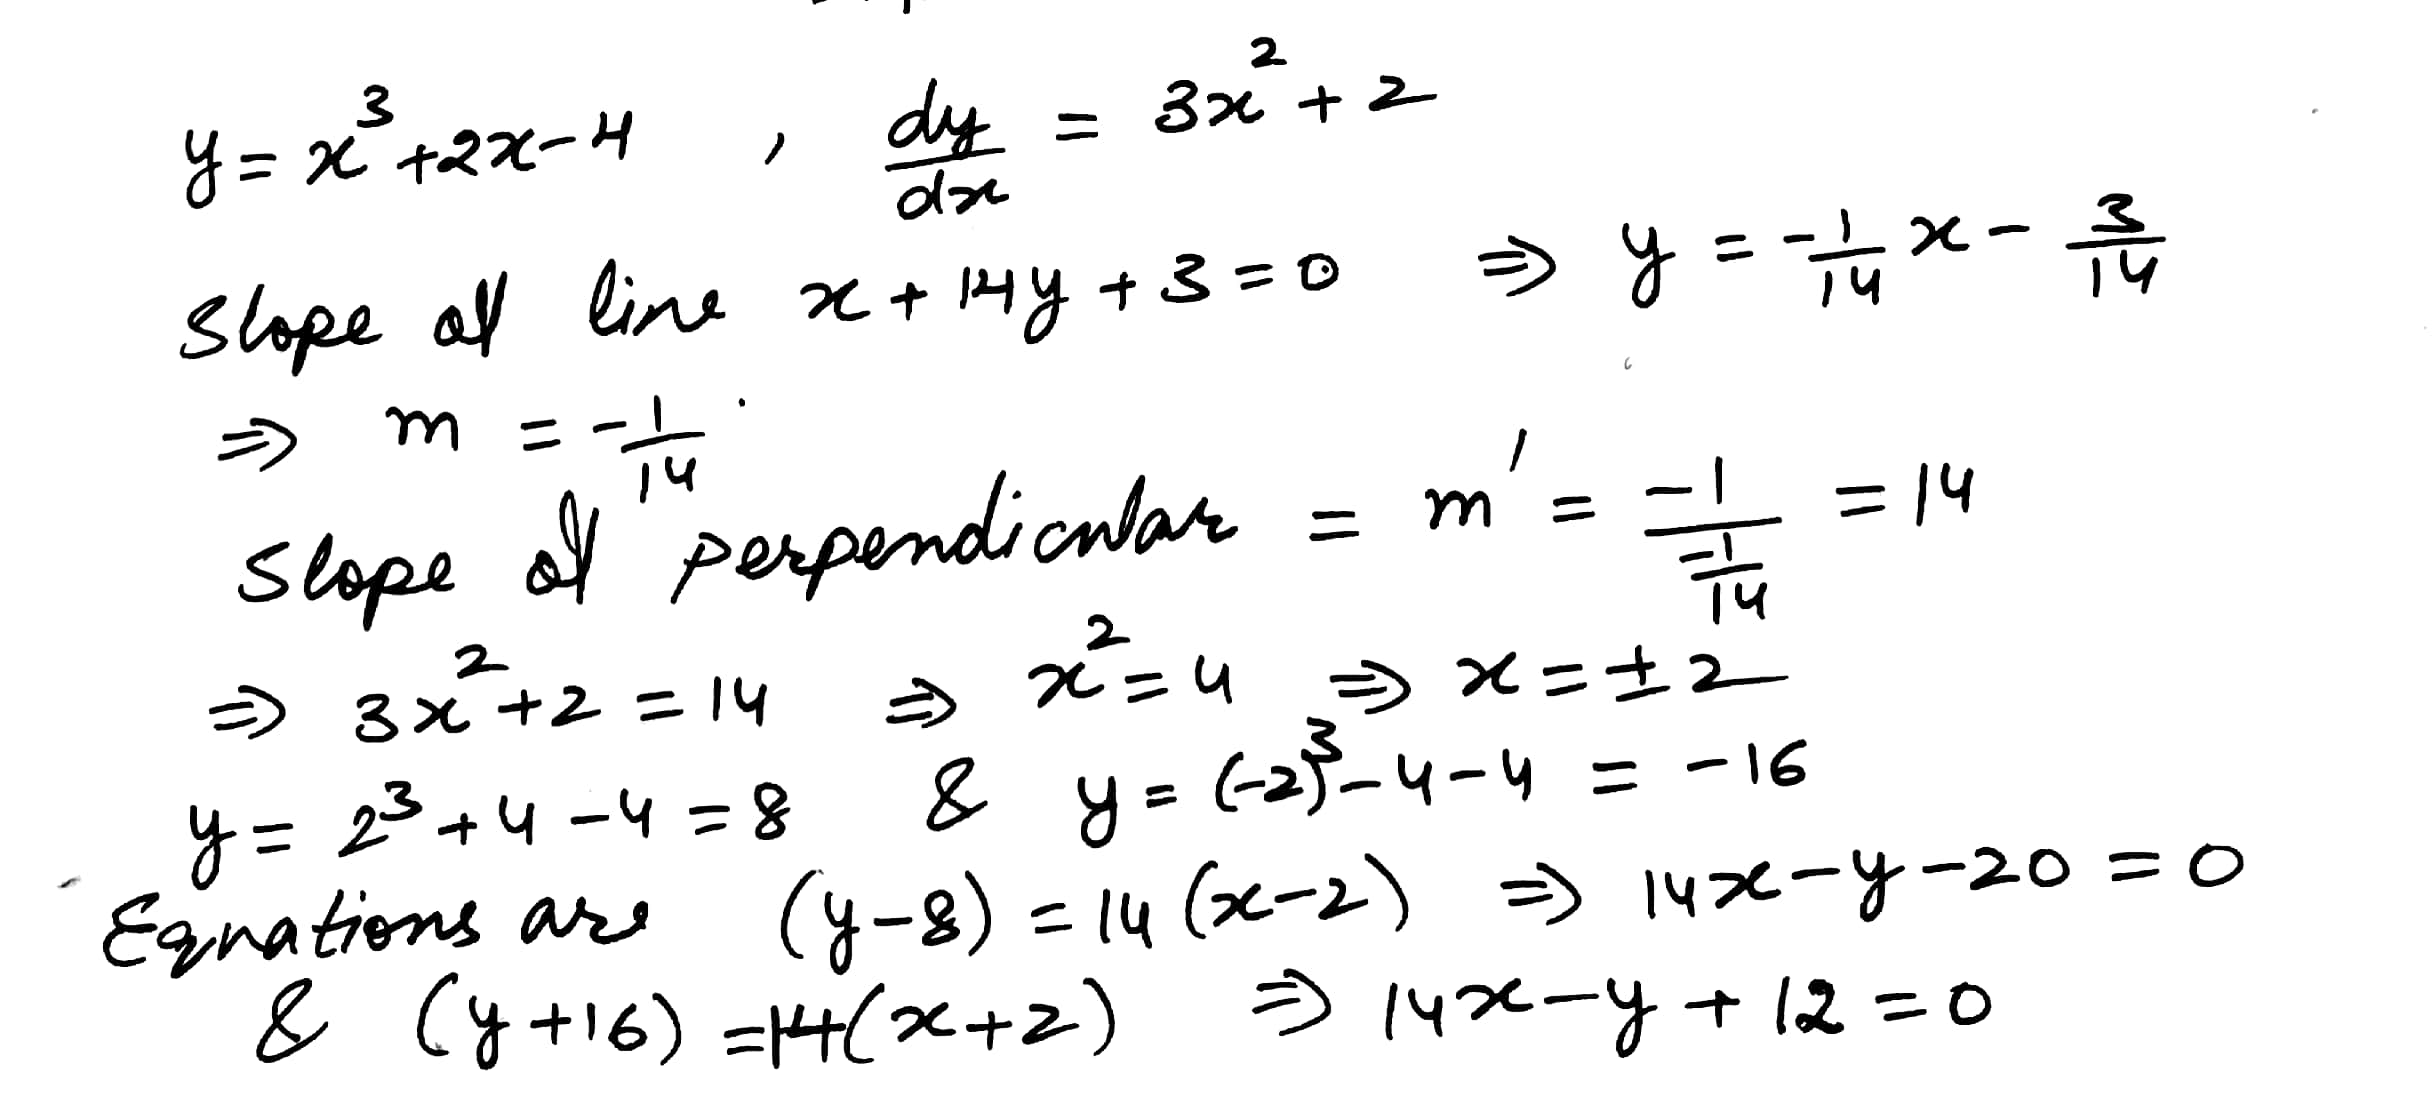 y = x³ + 2x - 4 , dy/dx = 3x² + 2
Slope of line x + 14y + 3 = 0 ⇒ y = -1/14 x - 3/14
⇒ m = -1/14 .
Slope of perpendicular = m' = -1/(-1/14) = 14
⇒ 3x² + 2 = 14 ⇒ x² = 4 ⇒ x = ± 2
y = 2³ + 4 - 4 = 8 & y = (-2)³ - 4 - 4 = -16
Equations are (y - 8) = 14 (x - 2) ⇒ 14x - y - 20 = 0
& (y + 16) = 14(x + 2) ⇒ 14x - y + 12 = 0